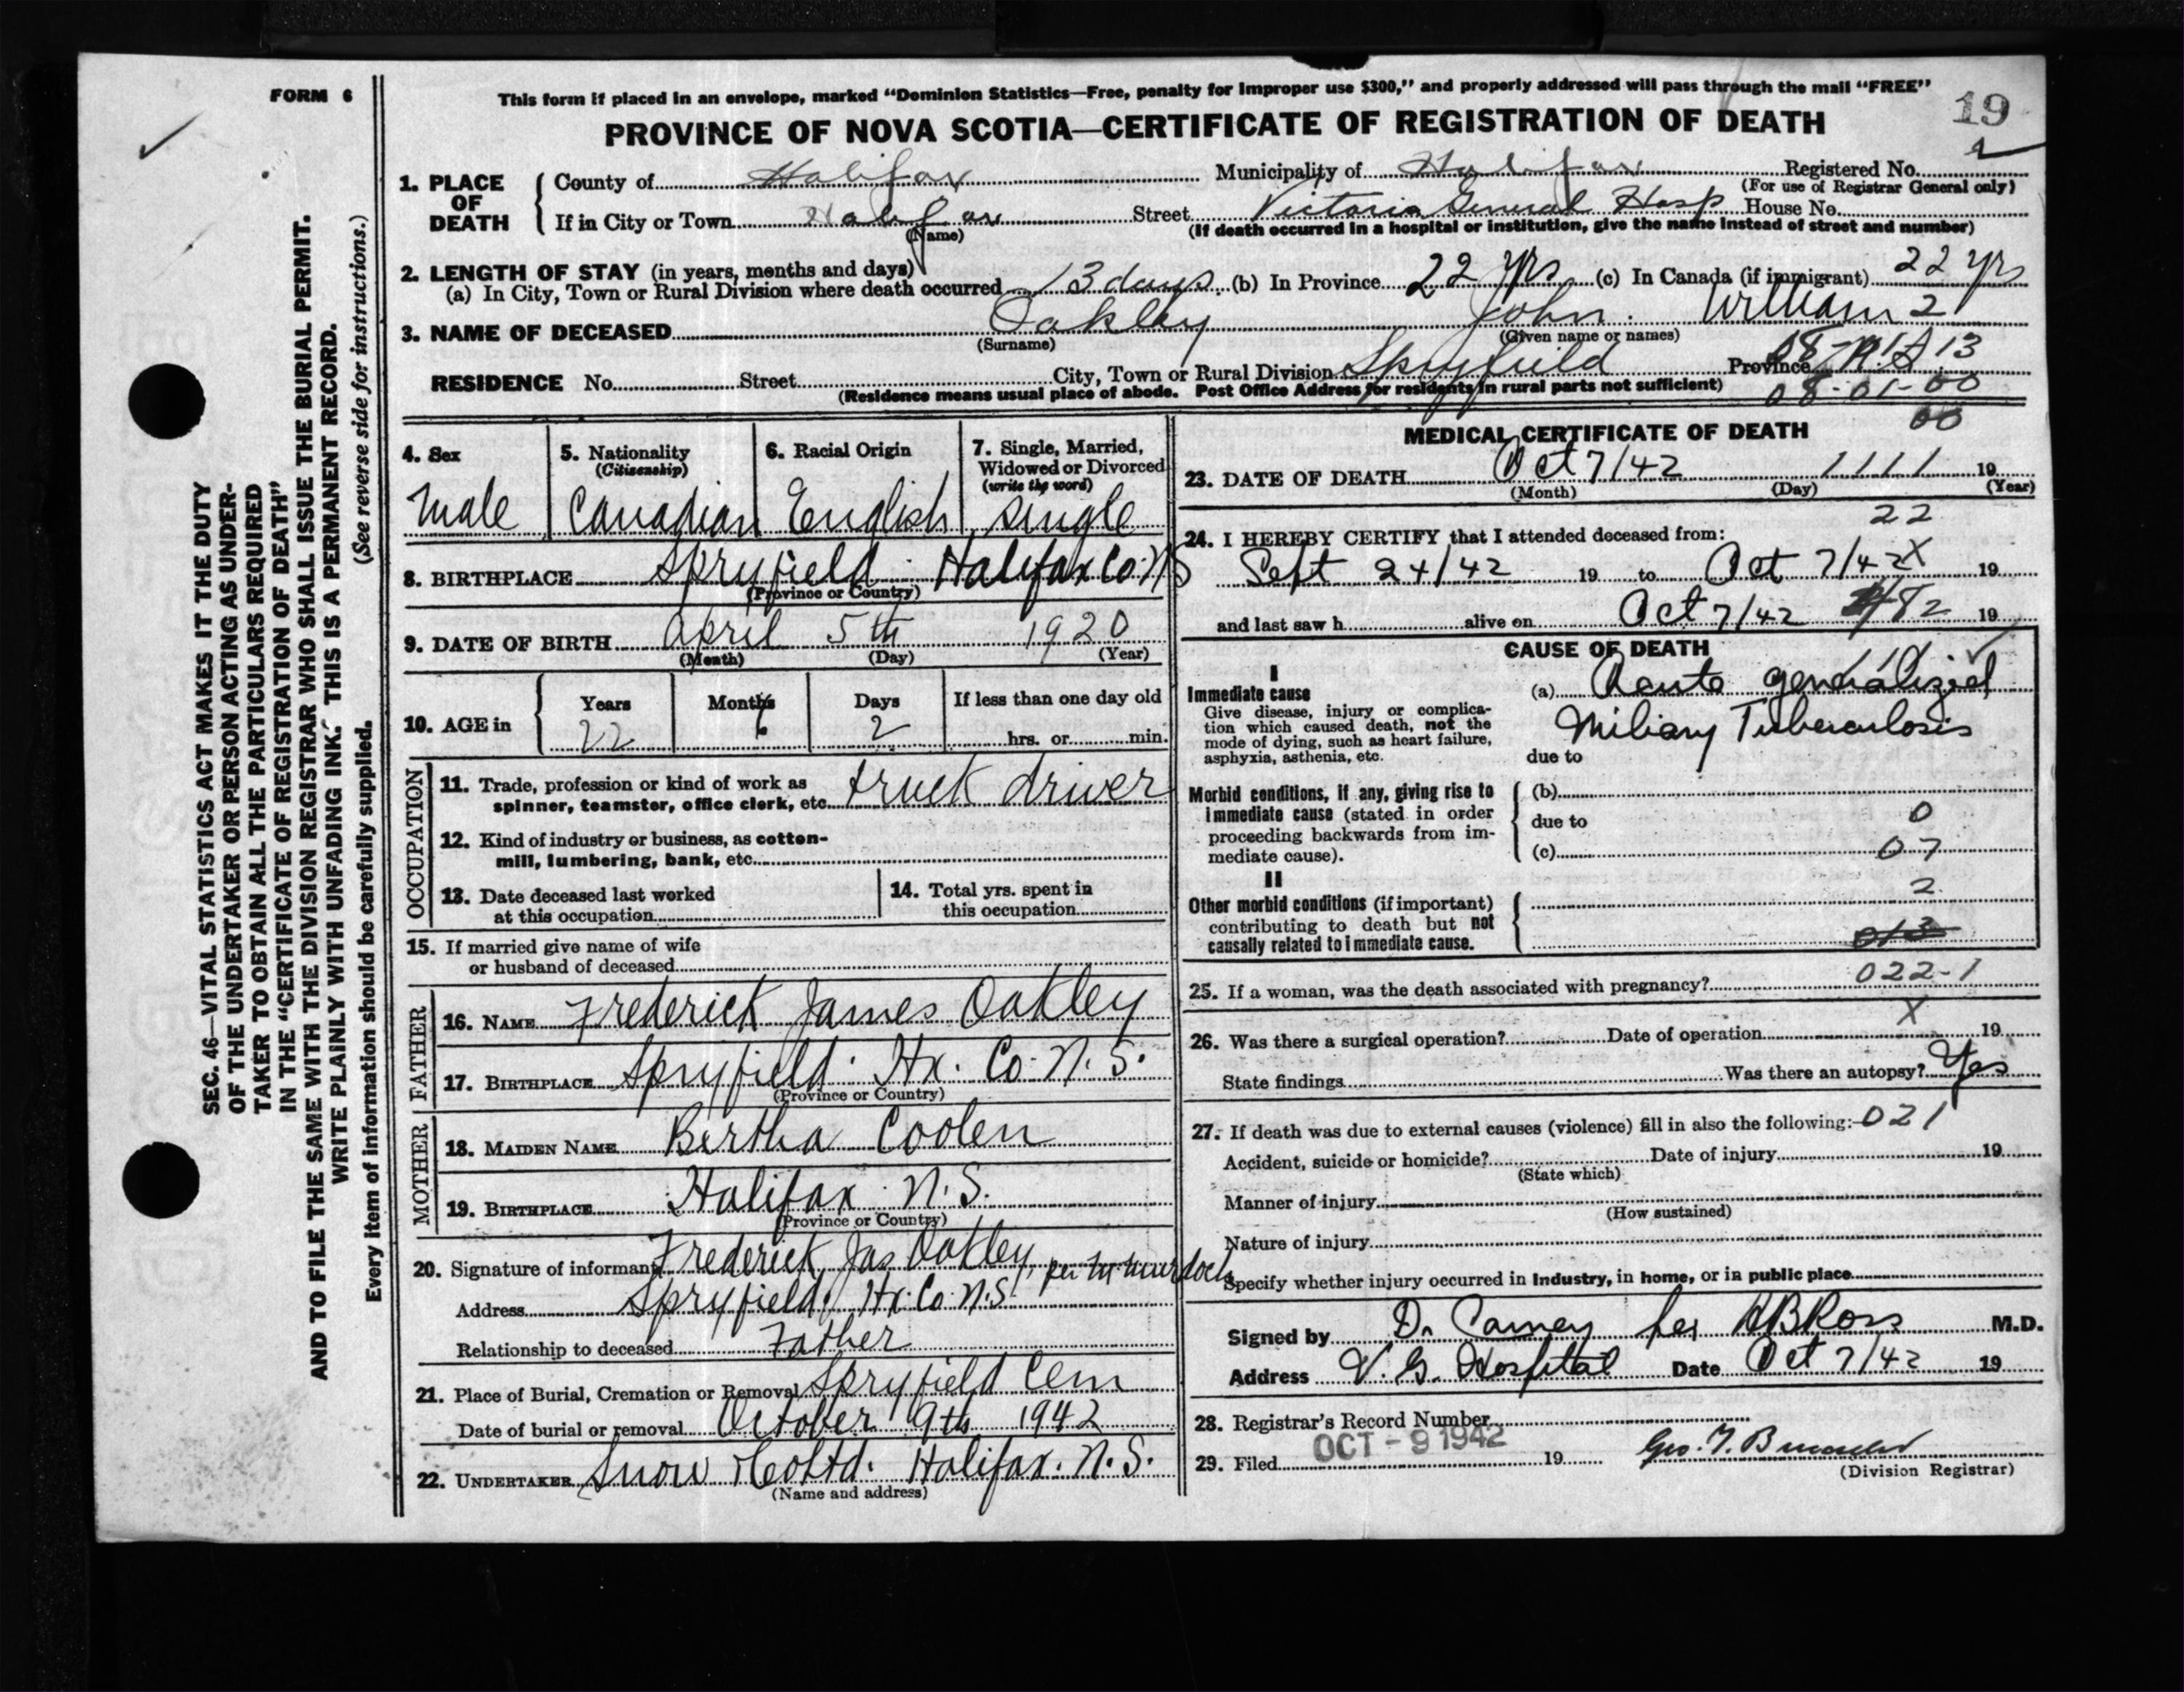 FORM 6
This form if placed in an envelope, marked "Dominion Statistics—Free, penalty for improper use $300," and properly addressed will pass through the mail "FREE"
19
PROVINCE OF NOVA SCOTIA—CERTIFICATE OF REGISTRATION OF DEATH
1. PLACE OF DEATH
County of Halifax Municipality of Halifax Registered No.
(For use of Registrar General only)
If in City or Town Halifax Street Victoria General Hosp House No.
(Name) (If death occurred in a hospital or institution, give the name instead of street and number)
2. LENGTH OF STAY (in years, months and days)
(a) In City, Town or Rural Division where death occurred 13 days (b) In Province 22 yrs (c) In Canada (if immigrant) 22 yrs
3. NAME OF DECEASED Oakley John William 2
(Surname) (Given name or names)
RESIDENCE No. Street City, Town or Rural Division Spryfield Province N.S.
(Residence means usual place of abode. Post Office Address for residents in rural parts not sufficient) 08-01-00
00
SEC. 46—VITAL STATISTICS ACT MAKES IT THE DUTY
OF THE UNDERTAKER OR PERSON ACTING AS UNDER-
TAKER TO OBTAIN ALL THE PARTICULARS REQUIRED
IN THE "CERTIFICATE OF REGISTRATION OF DEATH"
AND TO FILE THE SAME WITH THE DIVISION REGISTRAR WHO SHALL ISSUE THE BURIAL PERMIT.
WRITE PLAINLY WITH UNFADING INK. THIS IS A PERMANENT RECORD.
Every item of information should be carefully supplied. (See reverse side for instructions.)
4. Sex 5. Nationality 6. Racial Origin 7. Single, Married,
(Citizenship) Widowed or Divorced
(write the word)
Male Canadian English single
8. BIRTHPLACE Spryfield Halifax Co. NS
(Province or Country)
9. DATE OF BIRTH April 5th 1920
(Month) (Day) (Year)
10. AGE in Years Months Days If less than one day old
22 6 2 hrs. or min.
OCCUPATION
11. Trade, profession or kind of work as
spinner, teamster, office clerk, etc. truck driver
12. Kind of industry or business, as cotton-
mill, lumbering, bank, etc.
13. Date deceased last worked
at this occupation
14. Total yrs. spent in
this occupation
15. If married give name of wife
or husband of deceased
FATHER
16. NAME Frederick James Oakley
17. BIRTHPLACE Spryfield Hx. Co. N.S.
(Province or Country)
MOTHER
18. MAIDEN NAME Bertha Coolen
19. BIRTHPLACE Halifax N.S.
(Province or Country)
20. Signature of informant Frederick Jas Oakley, per M Murdoch
Address Spryfield Hx. Co. N.S.
Relationship to deceased Father
21. Place of Burial, Cremation or Removal Spryfield Cem
Date of burial or removal October 9th 1942
22. UNDERTAKER Snow & Co Ltd. Halifax. N.S.
(Name and address)
MEDICAL CERTIFICATE OF DEATH
23. DATE OF DEATH Oct 7/42 1111 19
(Month) (Day) (Year)
22
24. I HEREBY CERTIFY that I attended deceased from:
Sept 24/42 19 to Oct 7/42 X 19
and last saw h alive on Oct 7/42 19
CAUSE OF DEATH
I
Immediate cause
Give disease, injury or complica-
tion which caused death, not the
mode of dying, such as heart failure,
asphyxia, asthenia, etc.
(a) Acute generalized
Miliary Tuberculosis
due to
Morbid conditions, if any, giving rise to
immediate cause (stated in order
proceeding backwards from im-
mediate cause).
(b)
due to 0
(c) 07
II
Other morbid conditions (if important)
contributing to death but not
causally related to immediate cause.
2
013
25. If a woman, was the death associated with pregnancy? 022-1
X
26. Was there a surgical operation? Date of operation 19
State findings Was there an autopsy? Yes
27. If death was due to external causes (violence) fill in also the following:- 021
Accident, suicide or homicide? Date of injury 19
(State which)
Manner of injury
(How sustained)
Nature of injury
Specify whether injury occurred in Industry, in home, or in public place
Signed by Dr Carney per ABRoss M.D.
Address V. G. Hospital Date Oct 7/42 19
28. Registrar's Record Number
29. Filed OCT - 9 1942 19 Geo.
(Division Registrar)